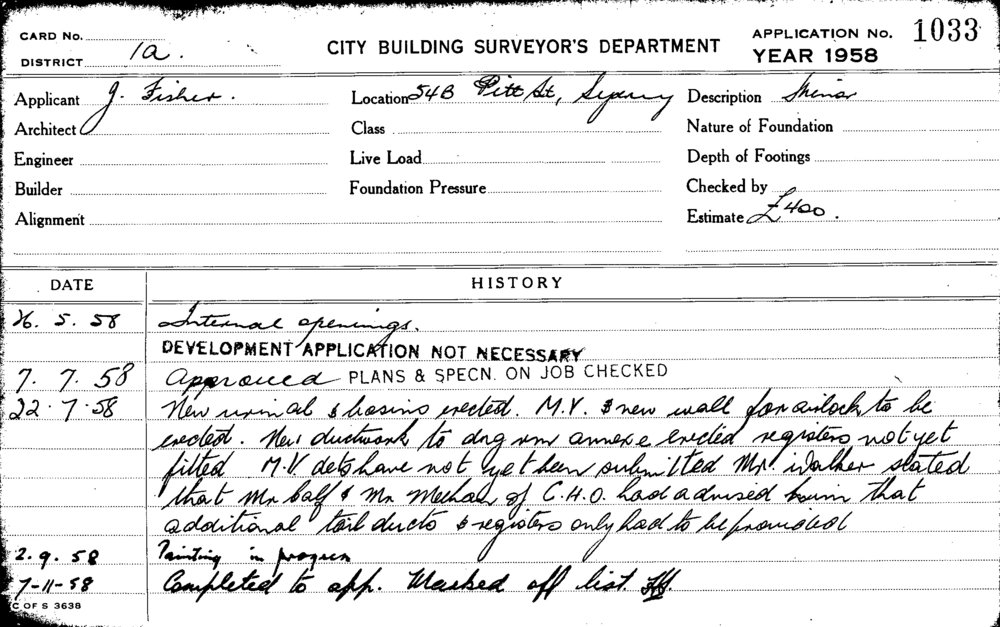 CARD No.
DISTRICT 1a.
CITY BUILDING SURVEYOR'S DEPARTMENT
APPLICATION No. 1033
YEAR 1958
Applicant J. Fisher. Location 54B Pitt St, Sydney Description Minor
Architect Class Nature of Foundation
Engineer Live Load Depth of Footings
Builder Foundation Pressure Checked by
Alignment Estimate £400.
DATE HISTORY
26. 5. 58 Internal openings.
DEVELOPMENT APPLICATION NOT NECESSARY
7. 7. 58 Approved PLANS & SPECN. ON JOB CHECKED
22. 7. 58 New urinal & basins erected. M.V. & new wall for airlock to be
erected. New ductwork to dng rm annexe erected registers not yet
fitted M.V dets have not yet been submitted Mr Walker stated
that Mr Calf & Mr Meehan of C.H.O. had advised him that
additional tail ducts & registers only had to be provided
2. 9. 58 Painting in progress
7-11-58 Completed to app. Marked off list.
C OF S 3638